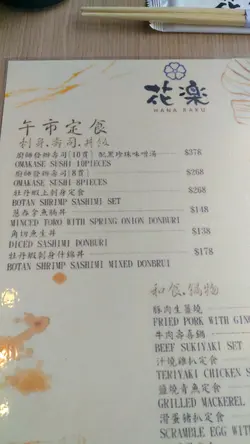 花楽
HANA RAKU
午市定食
刺身.壽司.丼飯
廚師發辦壽司[10貫] 配黑珍珠味噌湯 $378
OMAKASE SUSHI 10PIECES
廚師發辦壽司[8貫] $268
OMAKASE SUSHI 8PIECES
牡丹蝦上刺身定食 $268
BOTAN SHRIMP SASHIMI SET
葱吞拿魚蓉丼 $148
MINCED TORO WITH SPRING ONION DONBURI
角切魚生丼 $138
DICED SASHIMI DONBURI
牡丹蝦刺身什錦丼 $178
BOTAN SHRIMP SASHIMI MIXED DONBRUI
和食.鍋物
豚肉生薑燒
FRIED PORK WITH GIN
牛肉壽喜鍋
BEEF SUKIYAKI SET
汁燒雞扒定食
TERIYAKI CHICKEN S
鹽燒青魚定食
GRILLED MACKEREL
滑蛋豬扒定食
SCRAMBLE EGG WIT